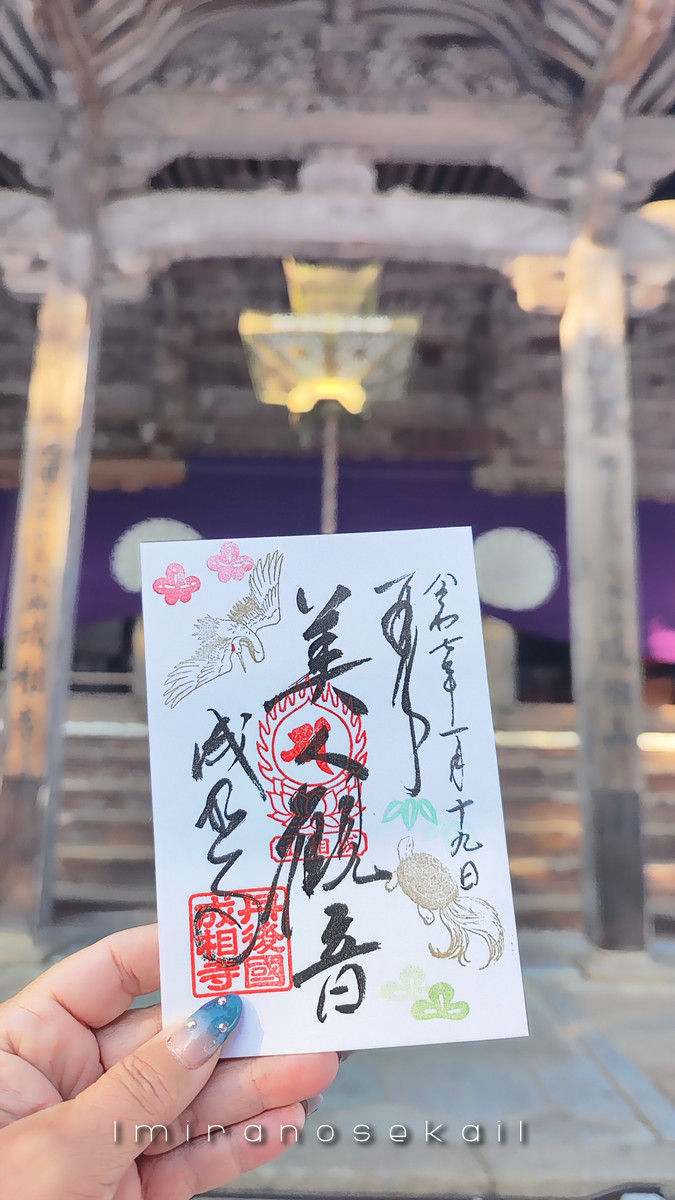 令和七年一月十九日
奉拝
美人観音
成相寺
丹後國
成相寺
成相寺
lmiranosekail